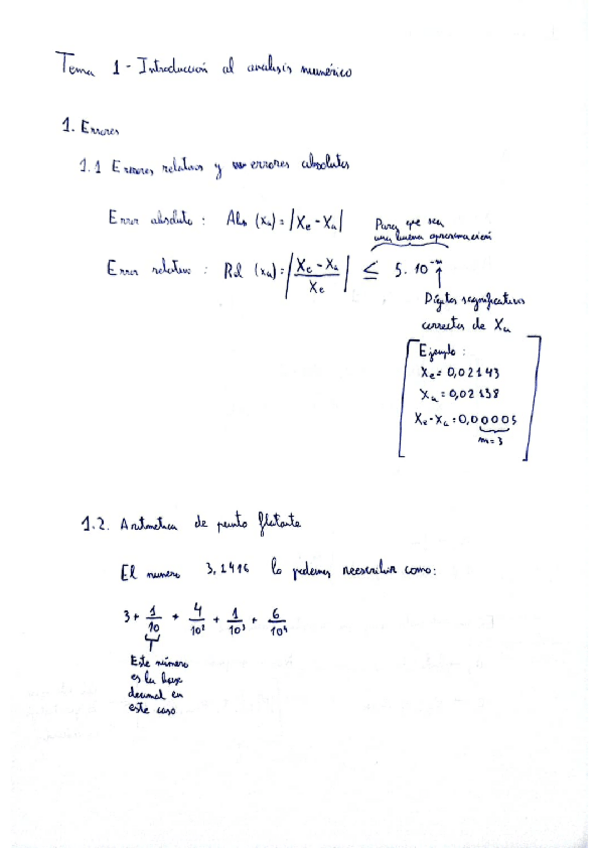 Tema 1 - Introducción al analisis numérico
1. Errores
1.1 Errores relativos y errores absolutos
Error absoluto : Abs (xₐ) = |Xₑ - Xₐ|
Para que sea
una buena aproximación
Error relativo : Rel (xₐ) = |(Xₑ - Xₐ)/Xₑ| ≤ 5. 10⁻ᵐ
Dígitos significativos
correctos de Xₐ
Ejemplo :
Xₑ = 0,02143
Xₐ = 0,02138
Xₑ - Xₐ = 0,00005
m = 3
1.2. Aritmetica de punto flotante
El numero 3,1416 lo podemos reescribir como:
3 + 1/10 + 4/10² + 1/10³ + 6/10⁴
Este número
es la base
decimal en
este caso